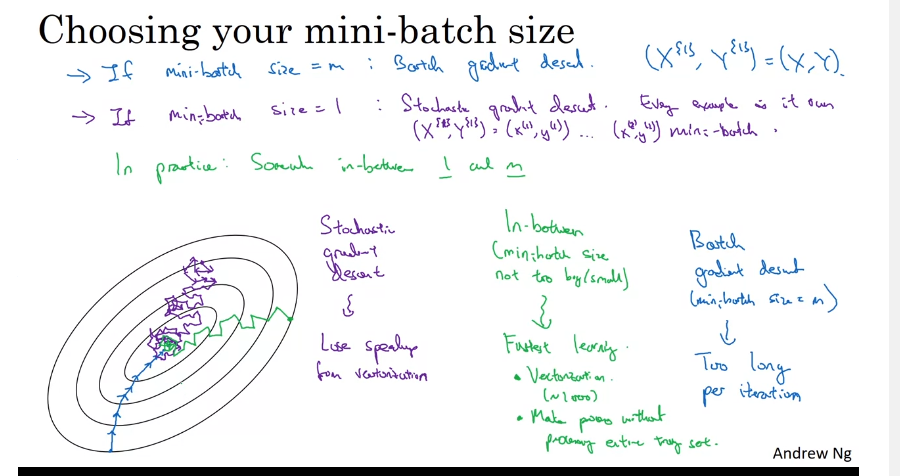 Choosing your mini-batch size
→ If mini-batch size = m : Batch gradient descent. (X^{1}, Y^{1}) = (X, Y).
→ If mini-batch size = 1 : Stochastic gradient descent. Every example is it own
(X^{1}, Y^{1}) = (x^(1), y^(1)) ... mini-batch.
In practice: Somewhere in-between 1 and m
Stochastic
gradient
descent
Lose speedup
from vectorization
In-between
(mini-batch size
not too big/small)
Fastest learning.
• Vectorization.
(~1000)
• Make progress without
processing entire training set.
Batch
gradient descent
(mini-batch size = m)
Too long
per iteration
Andrew Ng